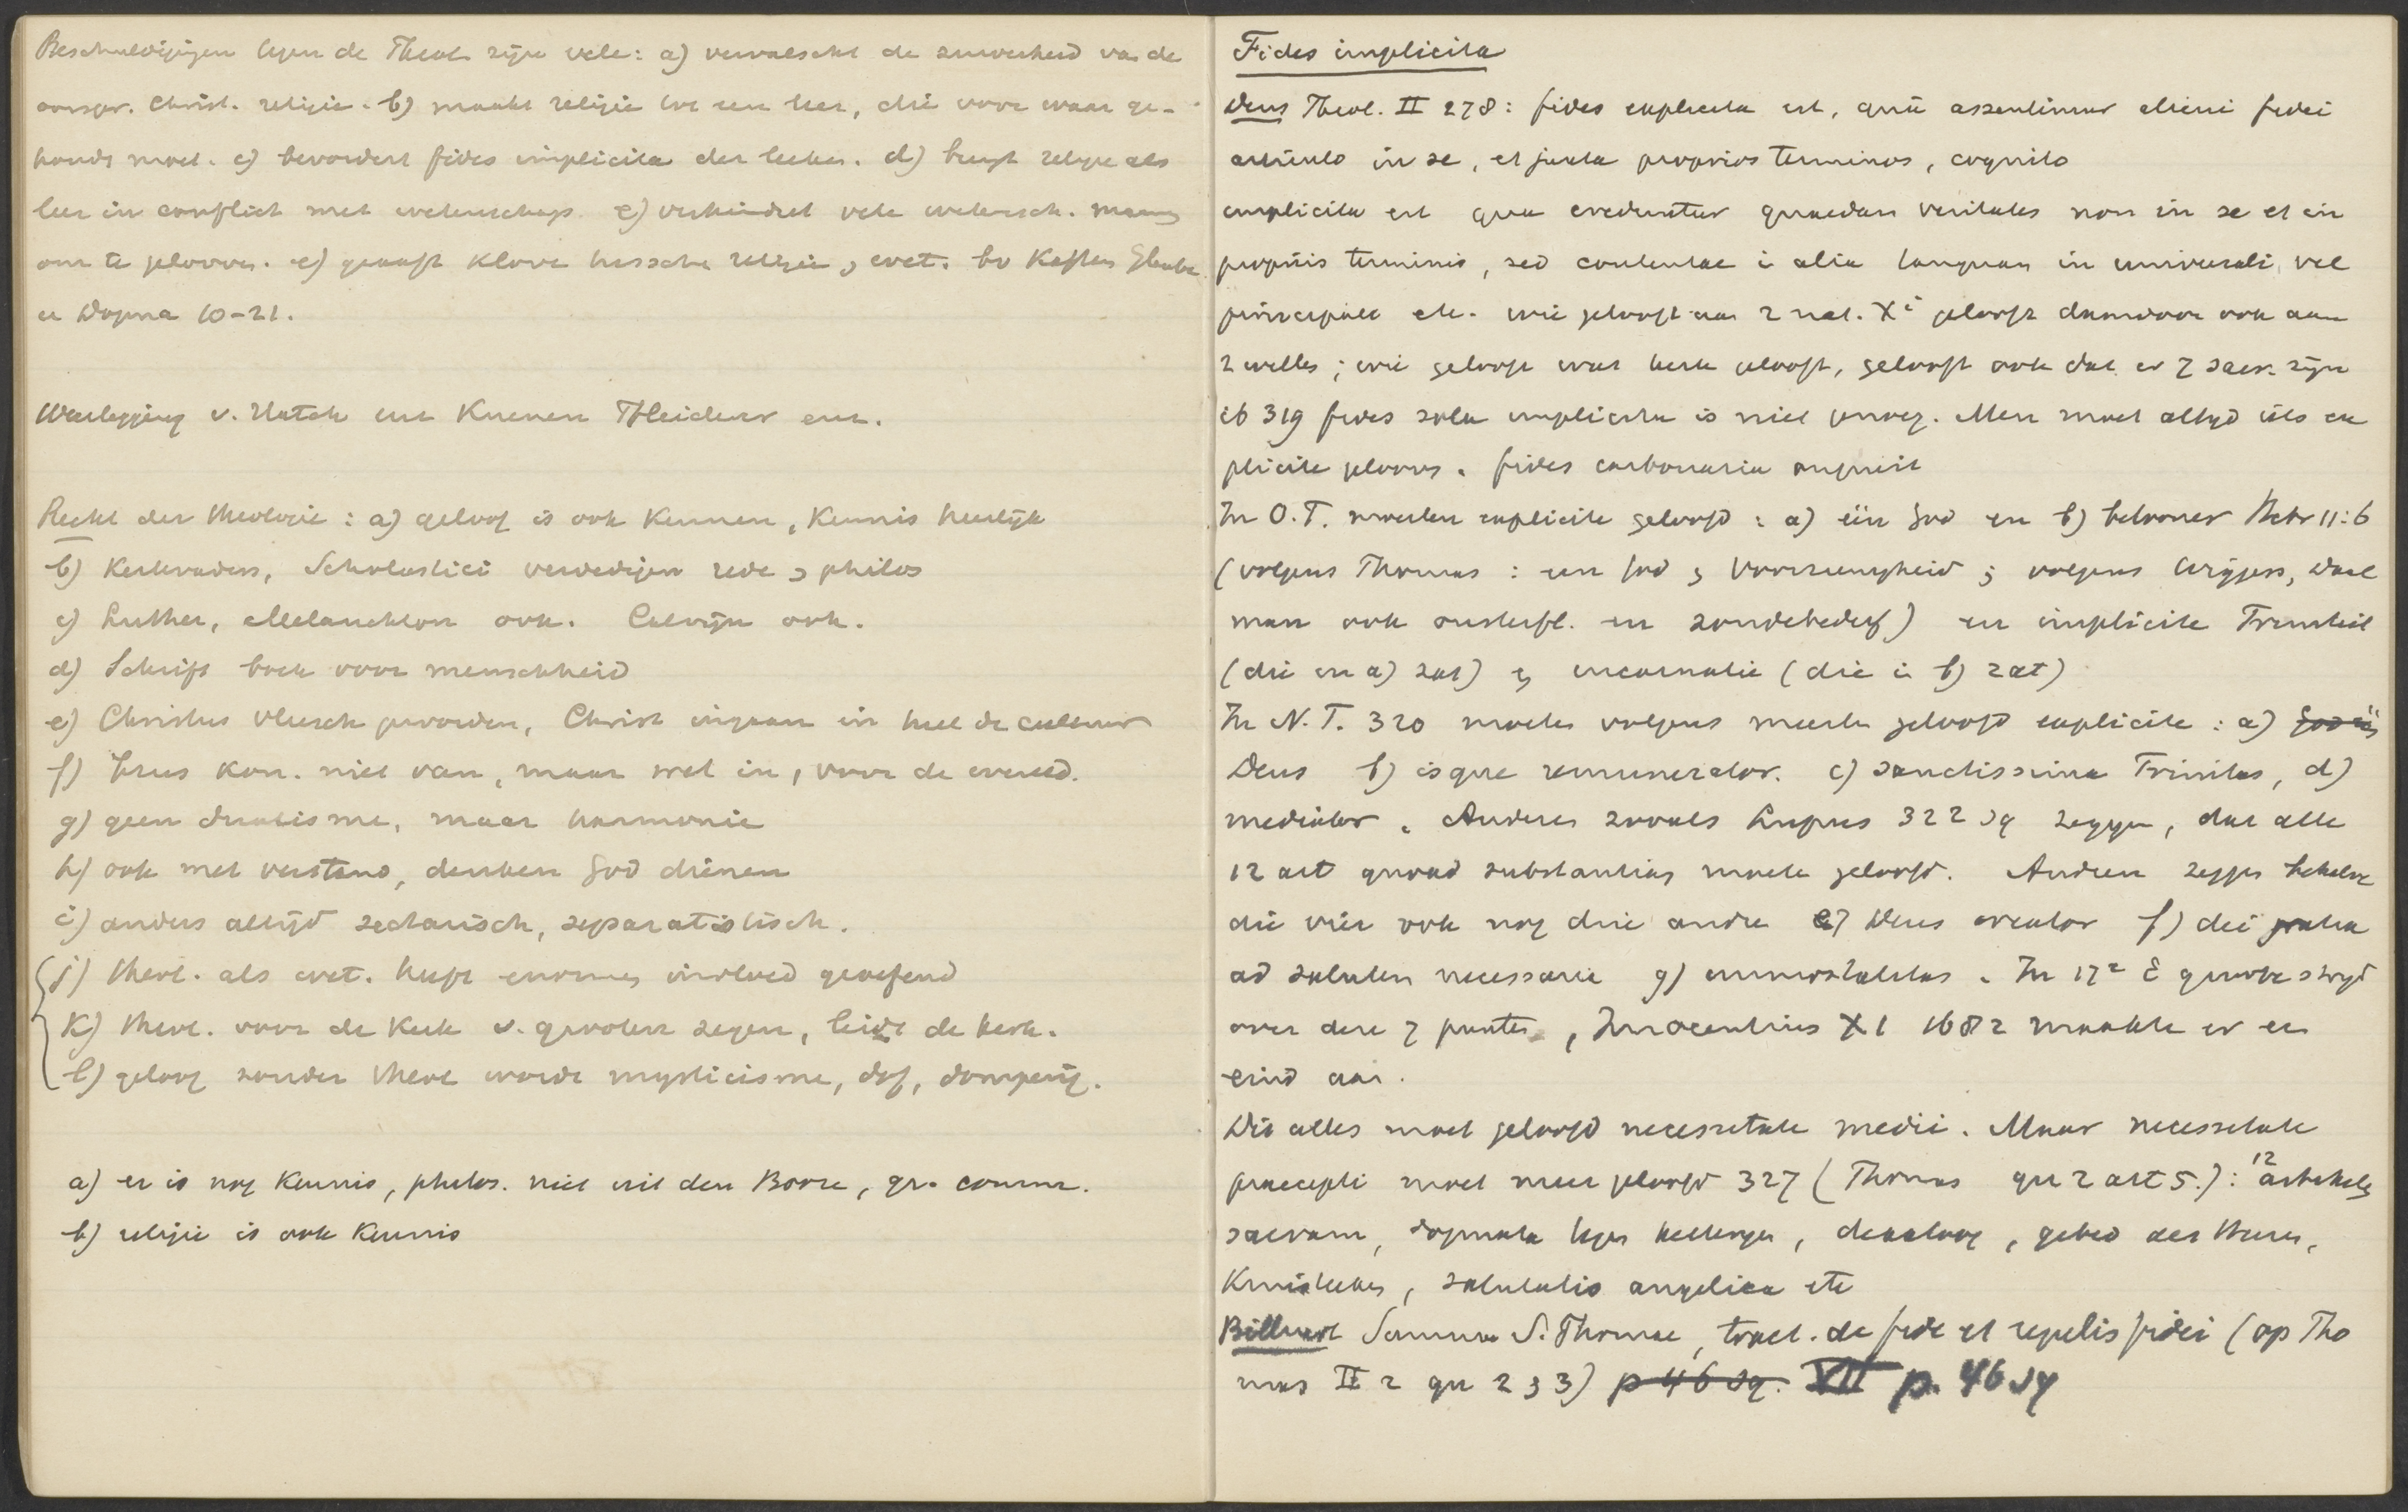 Beschuldigingen tegen de Theol. zijn vele: a) vervalscht de zuiverheid van de
oorspr. Christ. religie. b) maakt religie tot een leer, die voor waar ge-
houden moet. c) bevordert fides implicita der leeken. d) brengt religie als
leer in conflict met wetenschap. e) verhindert vele wetensch. mannen
om te gelooven. e) gaapt klove tusschen religie & wet. bv Kaftan Glaube
u Dogma 10-21.
Weerlegging v. Hatch en Kuenen Pfleiderer enz.
Recht der theologie: a) geloof is ook kennen, kennis heerlijk
b) Kerkvaders, Scholastici verdedigen rede & philos
c) Luther, Melanchton ook. Calvijn ook.
d) Schrift boek voor menschheid
e) Christus vleesch geworden, Christ. ingaan in heel de cultuur
f) Jezus kon. niet van, maar wel in, voor de wereld.
g) geen dualisme, maar harmonie
h) ook met verstand, denken God dienen
i) anders altijd sectarisch, separatistisch.
j) theol. als wet. heeft enormen invloed geoefend
k) theol. voor de kerk v. grooten zegen, leidt de kerk.
l) geloof zonder theol wordt mysticisme, dof, domperig.
a) er is nog kennis, philos. niet uit den Booze, gr. comm.
b) religie is ook kennis
Fides implicita
Dens Theol. II 278: fides explicita est, qua assentimur alicui fidei
articulo in se, et juxta proprios terminos, cognito
implicita est qua creduntur quaedam veritates non in se et in
propriis terminis, sed contentae i alia tanquam in universali, vel
principali etc. wie gelooft aan 2 nat. Xi gelooft daardoor ook aan
2 willen; wie gelooft wat kerk gelooft, gelooft ook dat er 7 sacr. zijn
ib 319 fides sola implicita is niet genoeg. Men moet altijd iets ex
plicite gelooven. fides carbonaria
In O.T. moesten explicite geloofd: a) één God en b) belooner Hebr 11:6
(volgens Thomas: een God & Voorzienigheid; volgens Wiggers, Dael
man ook onsterfl. en zondebederf) en implicite Triniteit
(die in a) zat) & incarnatie (die i b) zat)
In N.T. 320 moeten volgens meeste geloofd explicite: a) God één
Deus b) isque remunerator. c) sanctissima Trinitas, d)
mediator. Anderen zooals Lupus 322 sq zeggen, dat alle
12 art quoad substantiam moeten geloofd. Andren zeggen behalve
die vier ook nog drie andre e) Deus creator f) dei gratia
ad salutem necessaria g) immortalitas. In 17e E groote strijd
over deze 7 punten, Innocentius XI 1682 maakte er een
eind aan.
Dit alles moet geloofd necessitate medii. Maar necessitate
praecepti moet meer geloofd 327 (Thomas qu 2 art 5.): 12 artikelen
sacram, dogmata tegen ketterijen, dekaloog, gebed des Heeren,
Kruisteeken, salutatio angelica etc
Billuart Summa S. Thomae, tract. de fide et regulis fidei (op Tho
mas II 2 qu 2 & 3) p 46 sq. VII p. 46 sq